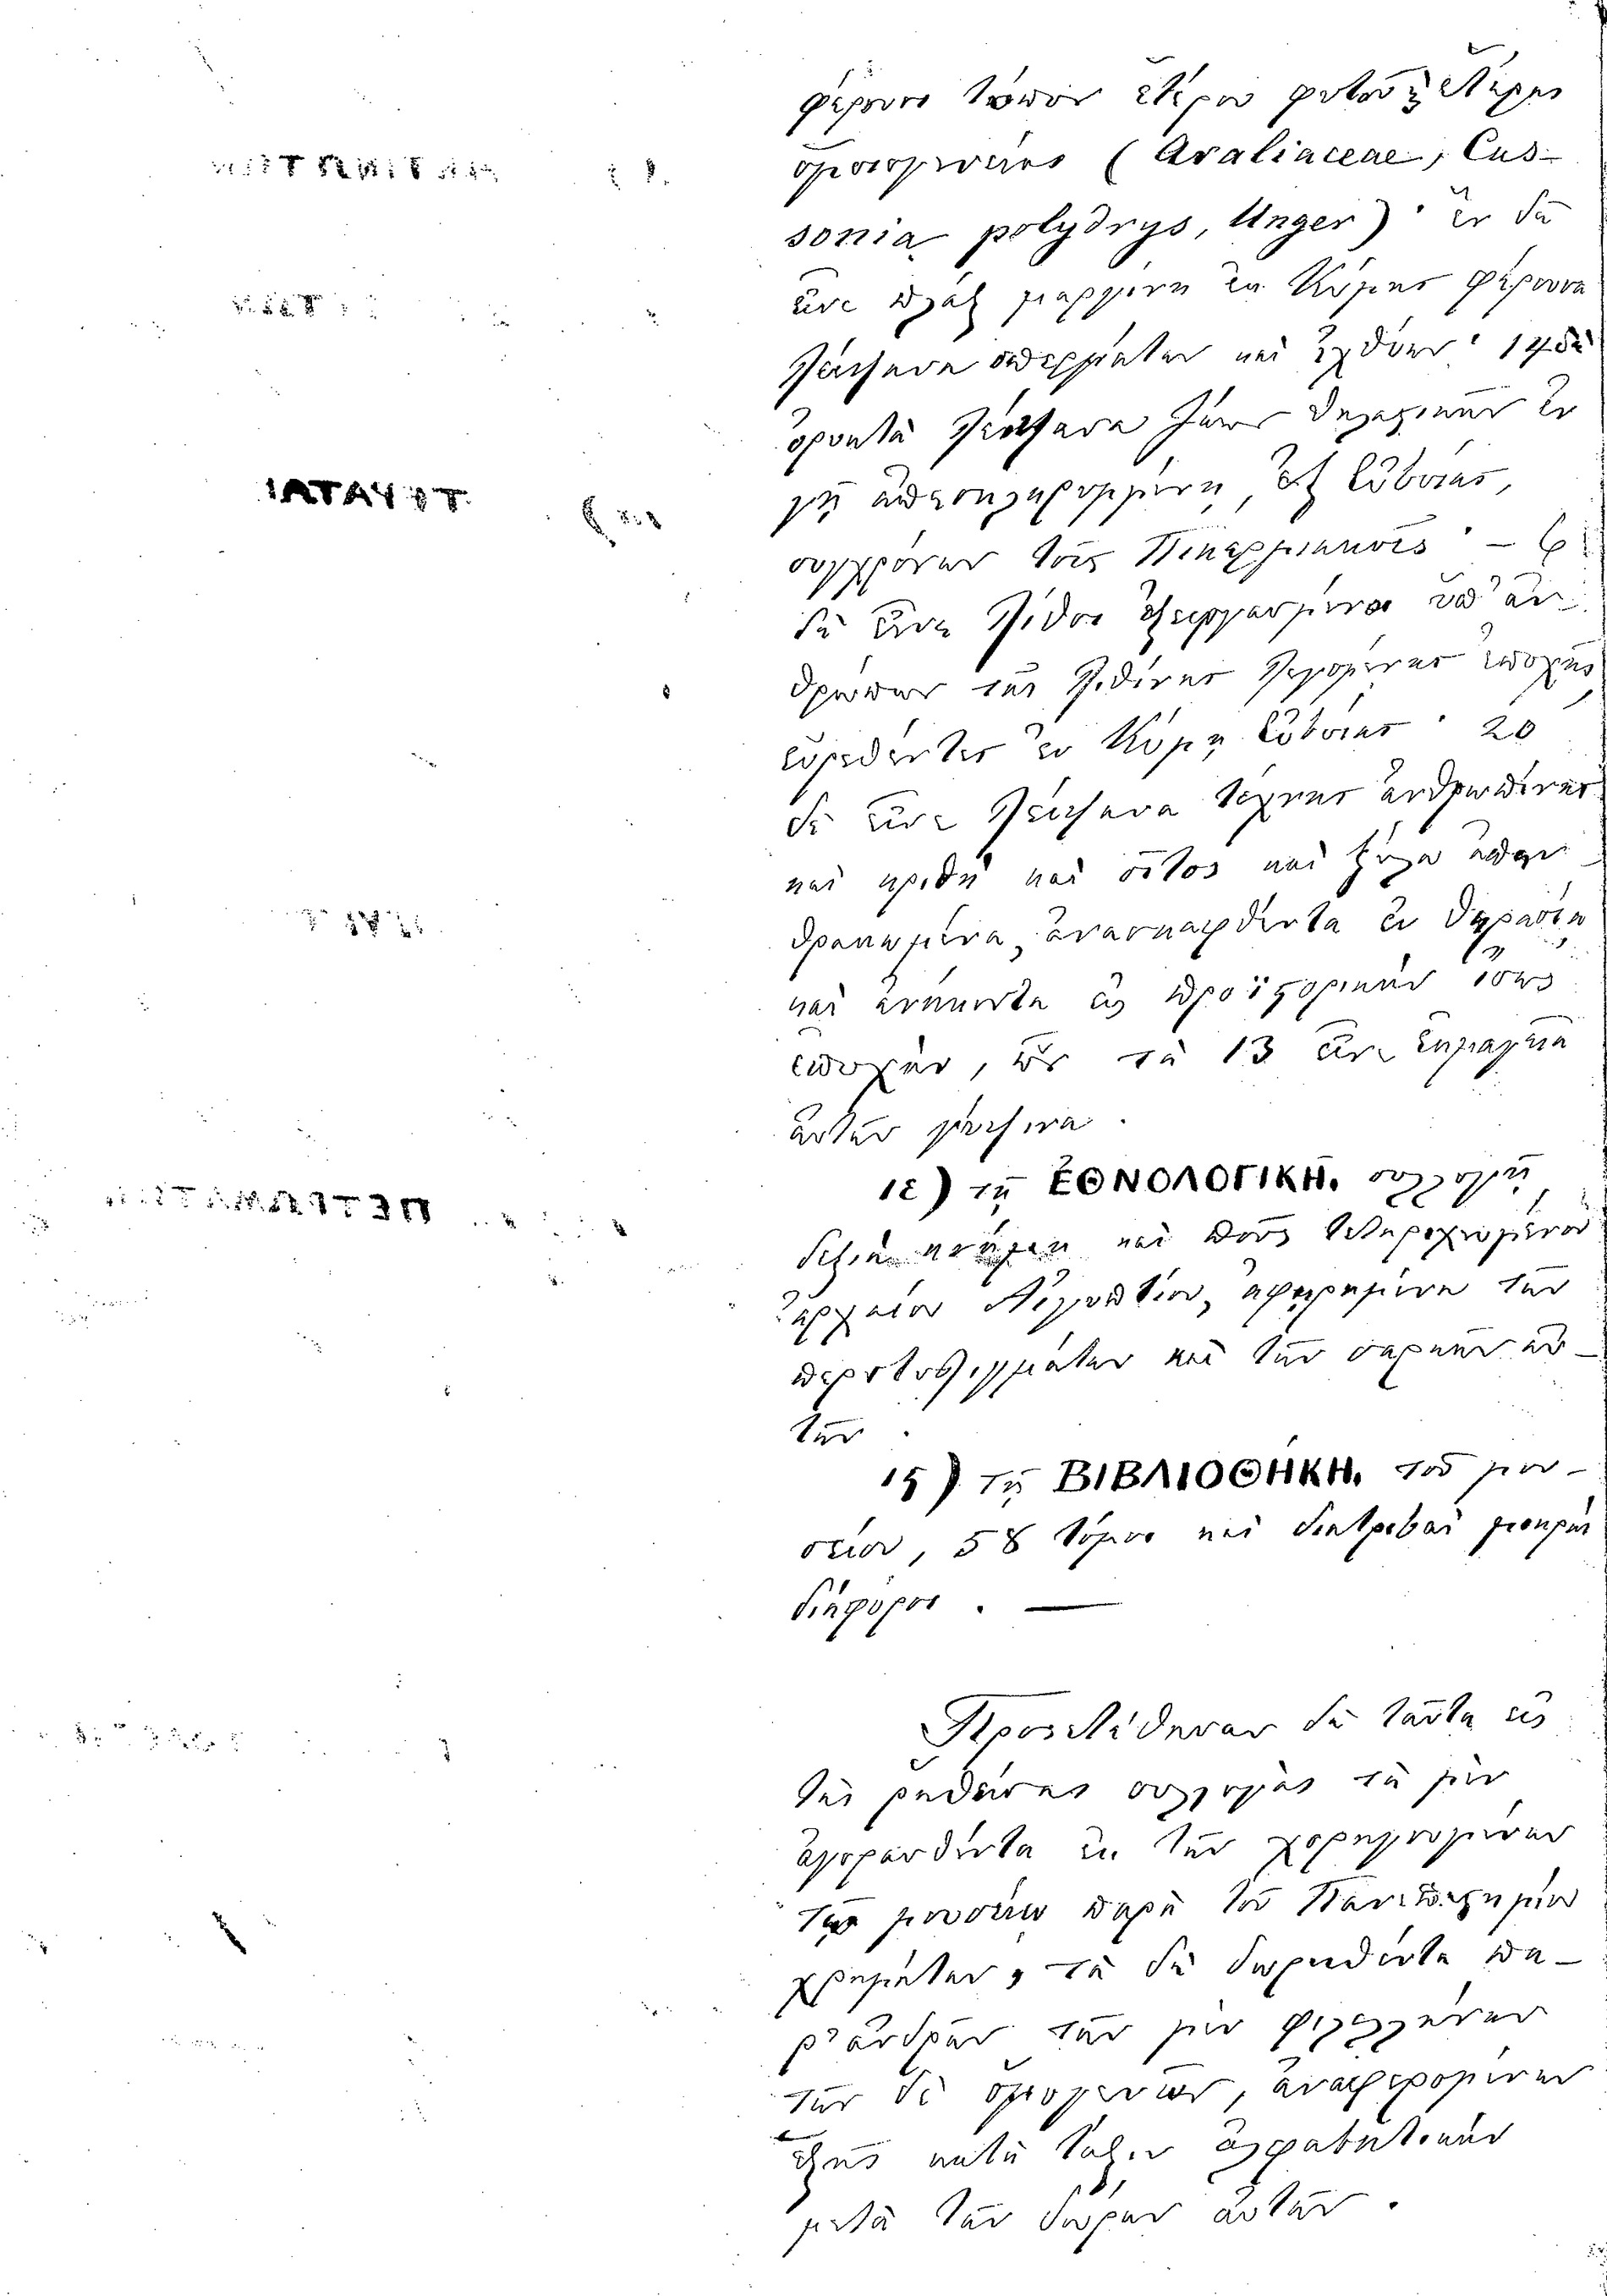 φέρουσι τύπον ἑτέρου φυτοῦ
ὁμοιογενοῦς (Araliaceae, Cus-
sonia polydrys, Unger)· ἓν δὲ
εἶνε πλὰξ ἐκ Κύμης φέρουσα
λείψανα σπερμάτων καὶ ἰχθύων·
ὀρυκτὰ λείψανα ζώων θηλαστικῶν ἐν
γῇ ἐξ Εὐβοίας,
συγχρόνων τοῖς Πικερμιακοῖς· – 6
δὲ εἶνε λίθοι ὑπ' ἀν-
θρώπων τῆς λιθίνης λεγομένης ἐποχῆς
εὑρεθέντες ἐν Κύμῃ Εὐβοίας· 20
δὲ εἶνε λείψανα τέχνης ἀνθρωπίνης
καὶ κριθὴ καὶ σῖτος καὶ ξύλα ἀπην-
θρακωμένα, ἀνασκαφθέντα ἐν Θηρασίᾳ
καὶ ἀνήκοντα εἰς προϊστορικὴν ἴσως
ἐποχήν, ὧν τὰ 13 εἶνε ἐκμαγεῖα
αὐτῶν
ιε) τῇ ΕΘΝΟΛΟΓΙΚΗ. συλλογῇ
δεξιὰ κνήμη καὶ ποὺς τεταριχευμένου
ἀρχαίου Αἰγυπτίου, ἀφῃρημένων τῶν
περιτυλιγμάτων καὶ τῶν σαρκῶν αὐ-
τῶν.
ιϛ) τῇ ΒΙΒΛΙΟΘΗΚΗ. τοῦ μου-
σείου, 58 τόμοι καὶ διατριβαὶ μικραὶ
διάφοροι. —
Προσετέθησαν δὲ ταῦτα εἰς
τὰς ῥηθείσας συλλογὰς τὰ μὲν
ἀγορασθέντα ἐκ τῶν χορηγουμένων
τῷ μουσείῳ παρὰ τοῦ Πανεπιστημίου
χρημάτων, τὰ δὲ δωρηθέντα πα-
ρ' ἀνδρῶν τῶν μὲν φιλελλήνων
τῶν δὲ ὁμογενῶν, ἀναφερομένων
ἑξῆς κατὰ τάξιν ἀλφαβητικὴν
μετὰ τῶν δώρων αὐτῶν.